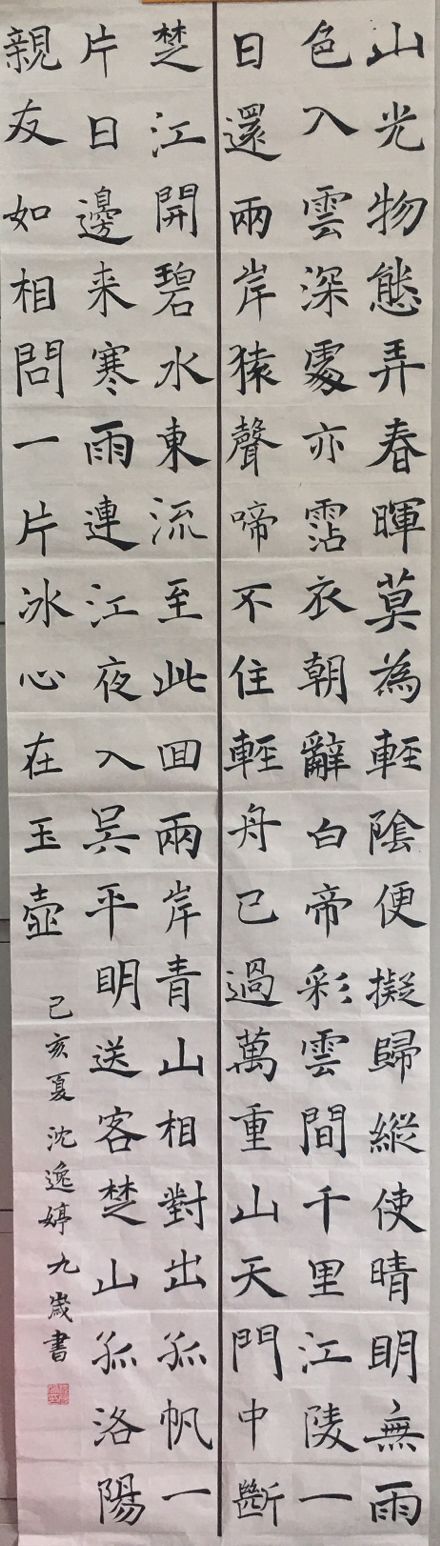 山光物態弄春暉莫為輕陰便擬歸縱使晴明無雨
色入雲深處亦霑衣朝辭白帝彩雲間千里江陵一
日還兩岸猿聲啼不住輕舟已過萬重山天門中斷
楚江開碧水東流至此回兩岸青山相對出孤帆一
片日邊来寒雨連江夜入吳平明送客楚山孤洛陽
親友如相問一片冰心在玉壺
己亥夏沈逸婷九歲書